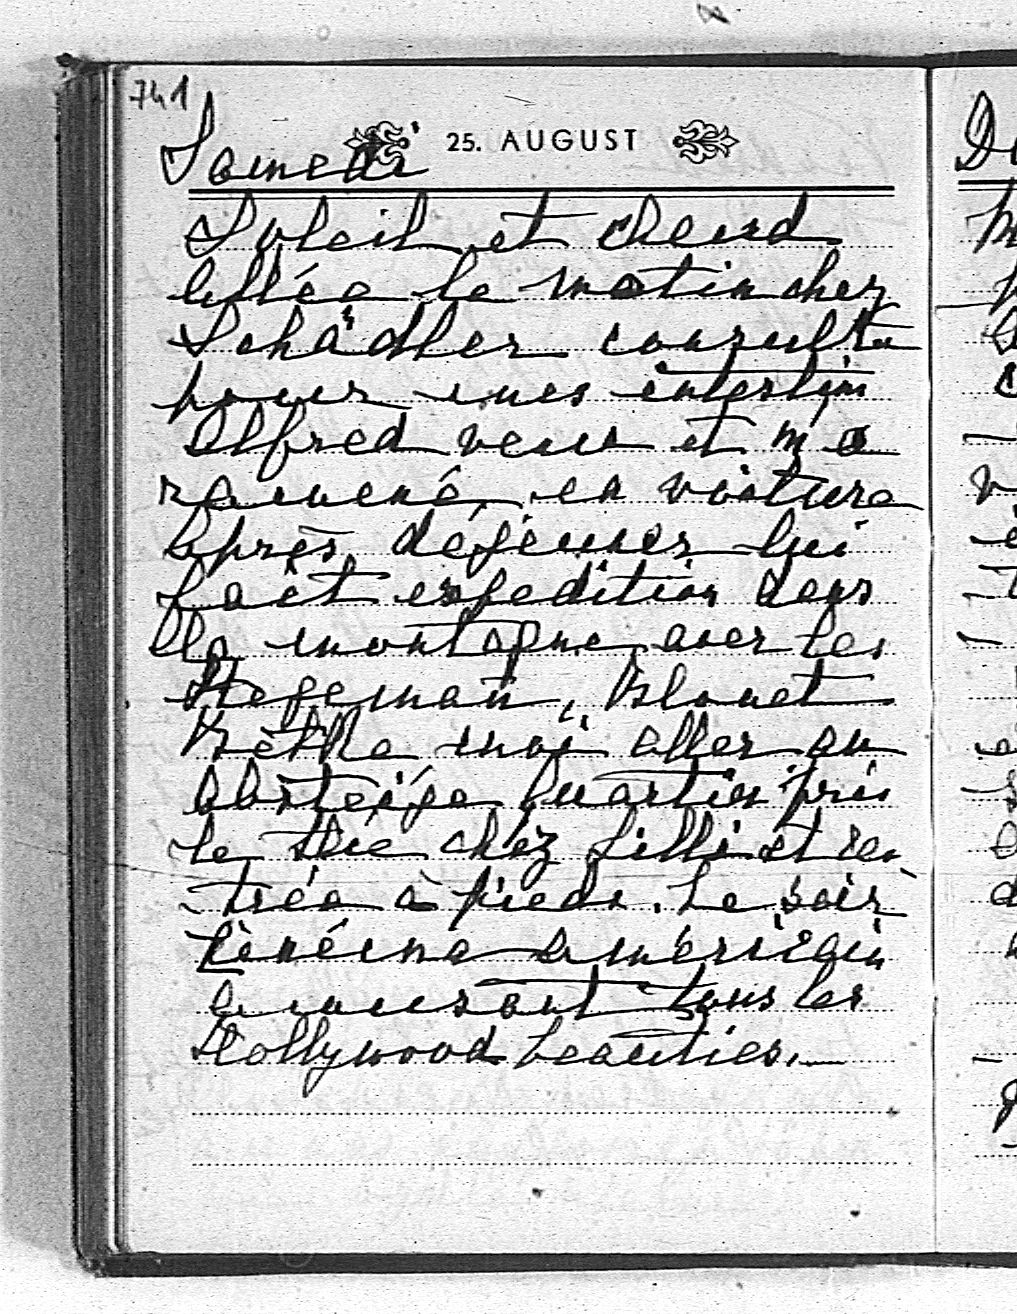 741
25. AUGUST
Samedi
Soleil et chaud
Allée le matin chez
Schädler consulta
pour mes intestin
Alfred venu et m'a
ramené, en voiture
Après déjeuner lui
fait expedition dans
la montagne avec les
Hegeman, Blonet
moi aller au
Quartier pris
le thé chez Lilli et ren
trée à pieds. Le soir
Cinéma américain
amusant tous les
Hollywood beauties.